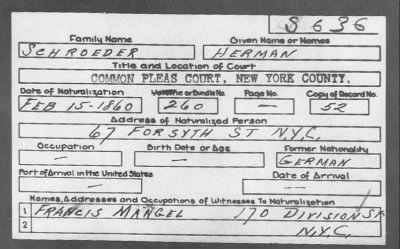 S 636
Family Name Given Name or Names
SCHROEDER HERMAN
Title and Location of Court
COMMON PLEAS COURT, NEW YORK COUNTY.
Date of Naturalization Volume or Bundle No. Page No. Copy of Record No.
FEB 15-1860 260 — 52
Address of Naturalized Person
67 FORSYTH ST N.Y.C.
Occupation Birth Date or Age Former Nationality
— — GERMAN
Port of Arrival in the United States Date of Arrival
— —
Names, Addresses and Occupations of Witnesses To Naturalization
1 FRANCIS MANGEL 170 DIVISION ST
2 N.Y.C.